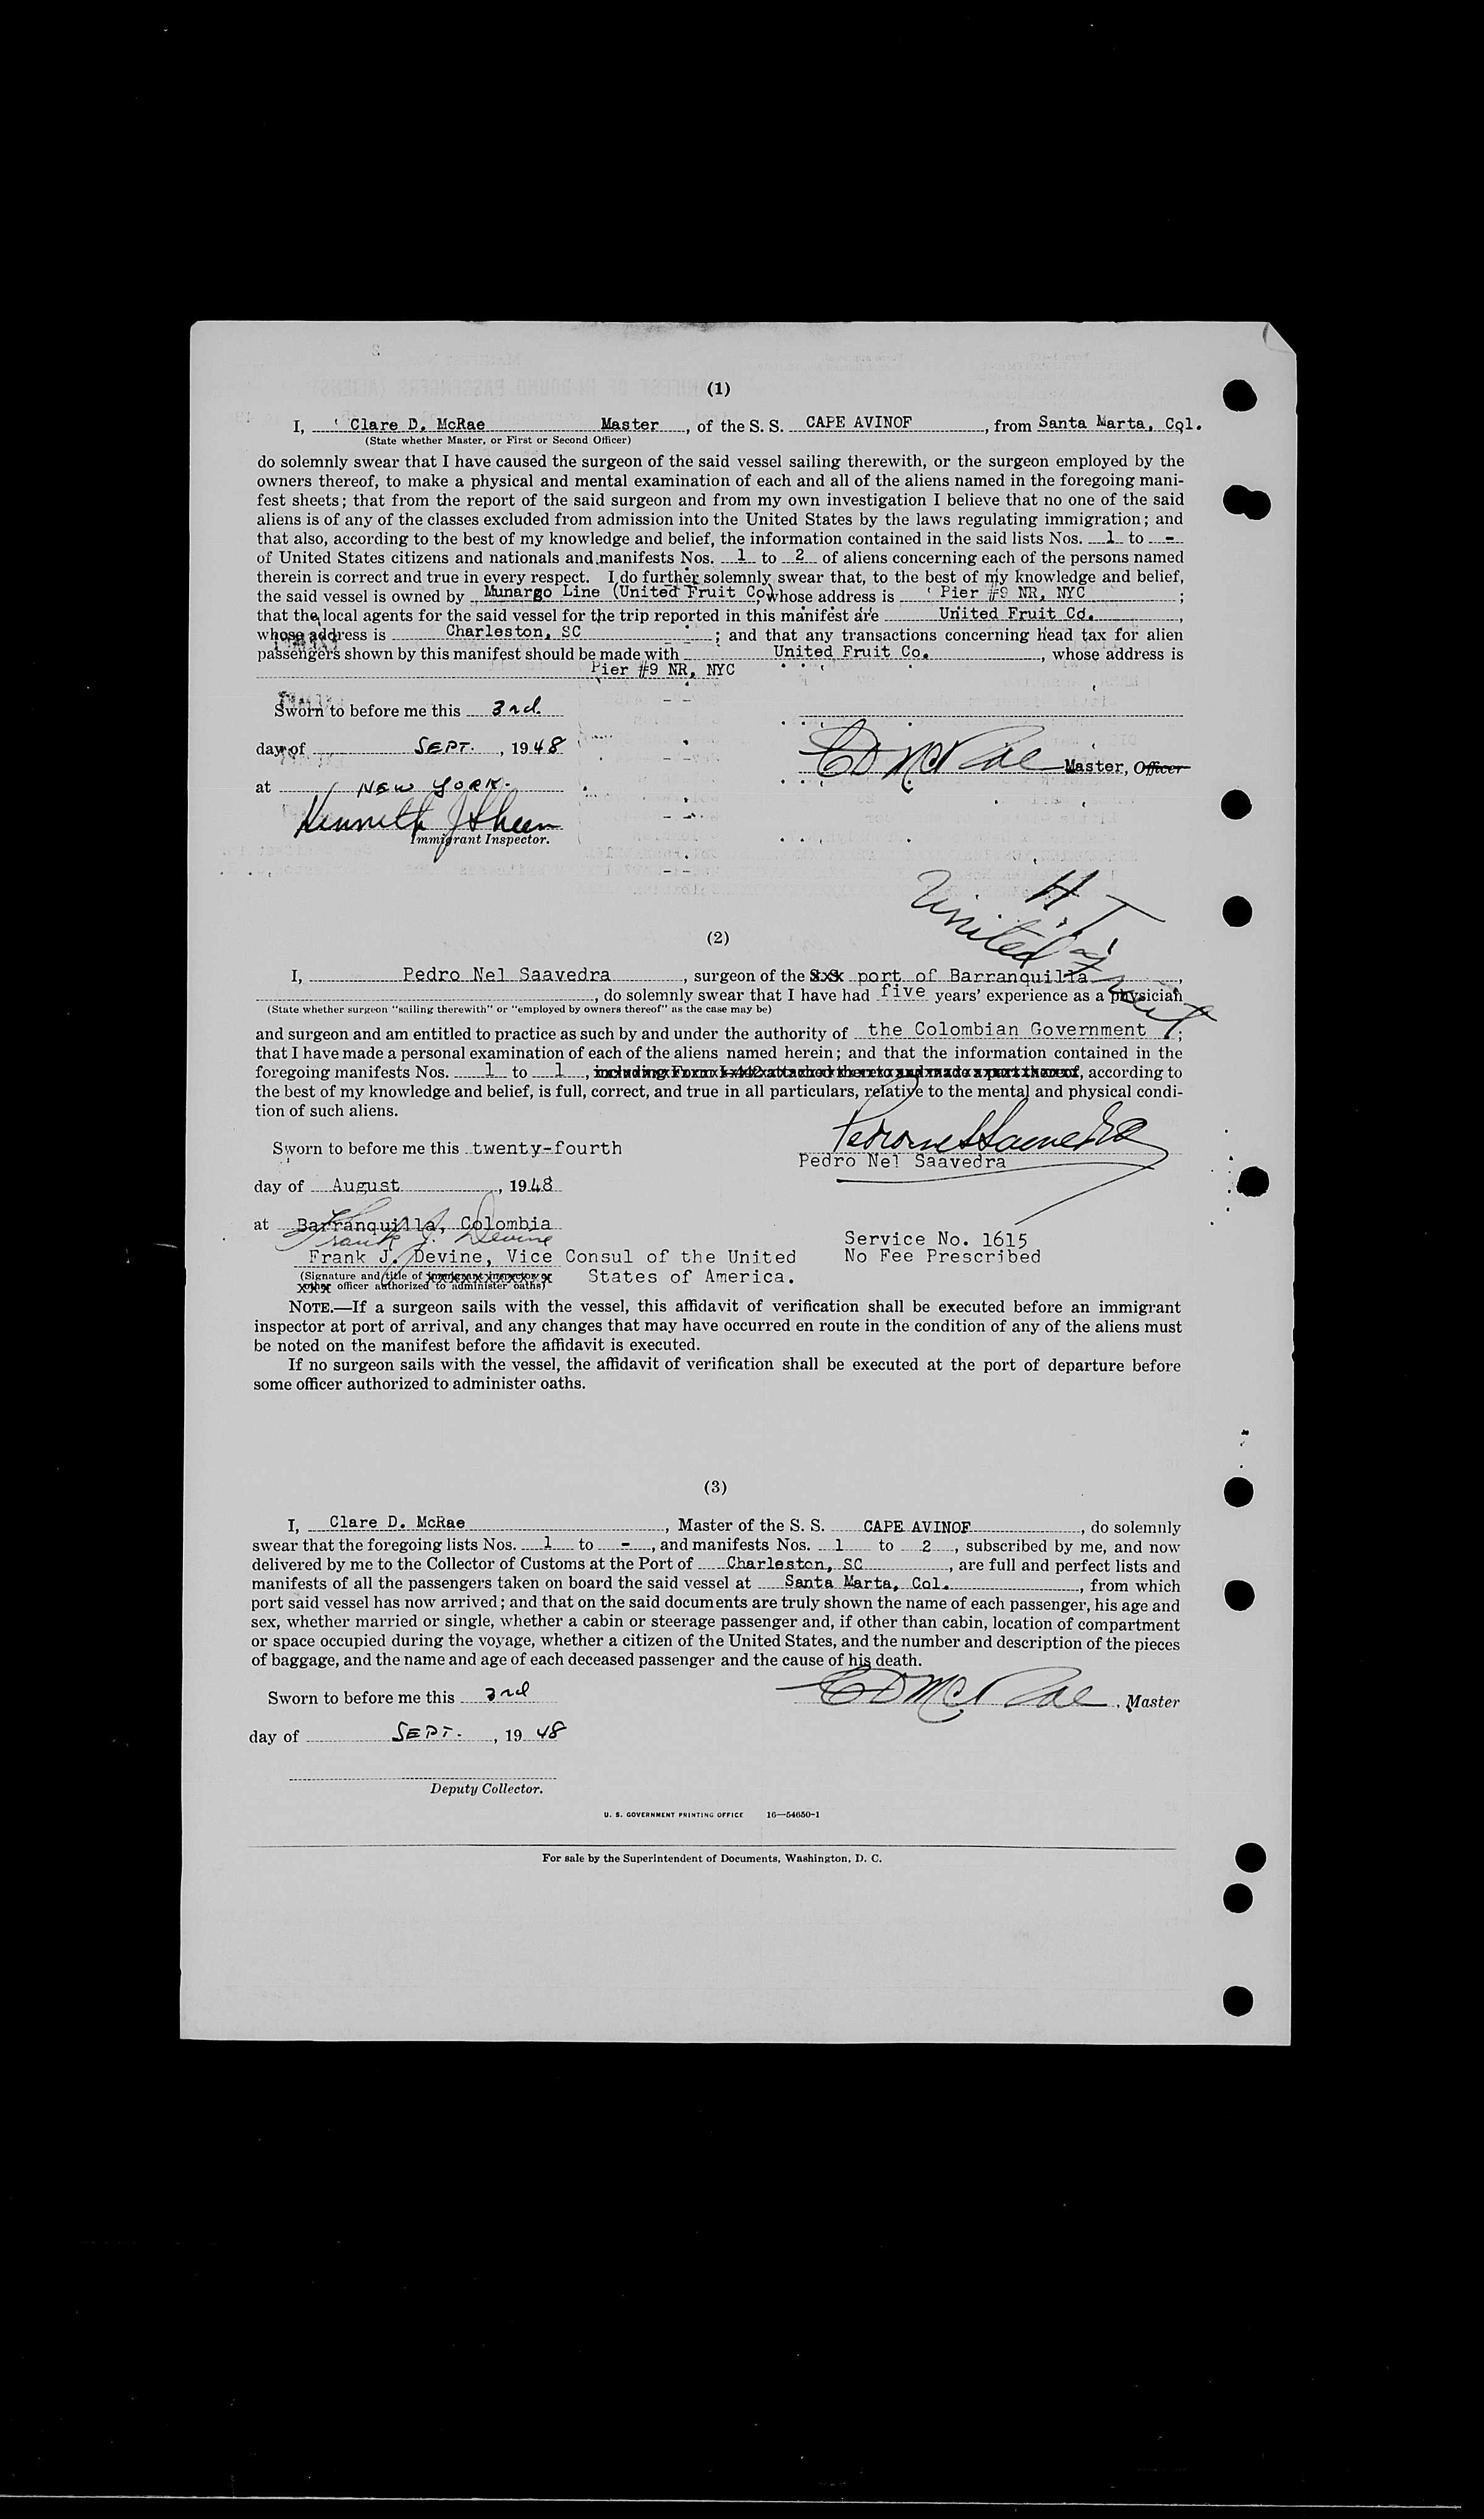 (1)
I, Clare D. McRae Master, of the S. S. CAPE AVINOF, from Santa Marta, Col.
(State whether Master, or First or Second Officer)
do solemnly swear that I have caused the surgeon of the said vessel sailing therewith, or the surgeon employed by the
owners thereof, to make a physical and mental examination of each and all of the aliens named in the foregoing mani-
fest sheets; that from the report of the said surgeon and from my own investigation I believe that no one of the said
aliens is of any of the classes excluded from admission into the United States by the laws regulating immigration; and
that also, according to the best of my knowledge and belief, the information contained in the said lists Nos. 1 to -
of United States citizens and nationals and manifests Nos. 1 to 2 of aliens concerning each of the persons named
therein is correct and true in every respect. I do further solemnly swear that, to the best of my knowledge and belief,
the said vessel is owned by Munargo Line (United Fruit Co), whose address is Pier #9 NR, NYC ;
that the local agents for the said vessel for the trip reported in this manifest are United Fruit Co. ,
whose address is Charleston, SC ; and that any transactions concerning head tax for alien
passengers shown by this manifest should be made with United Fruit Co. , whose address is
Pier #9 NR, NYC
Sworn to before me this 3rd
day of SEPT. , 1948
CD McRae Master, Officer
at NEW YORK.
Kenneth J Sheen
Immigrant Inspector.
H.T.
United Fruit
(2)
I, Pedro Nel Saavedra , surgeon of the port of Barranquilla ,
, do solemnly swear that I have had five years' experience as a physician
(State whether surgeon "sailing therewith" or "employed by owners thereof" as the case may be)
and surgeon and am entitled to practice as such by and under the authority of the Colombian Government ;
that I have made a personal examination of each of the aliens named herein; and that the information contained in the
foregoing manifests Nos. 1 to 1 , including Form I-442 attached thereto and made a part thereof, according to
the best of my knowledge and belief, is full, correct, and true in all particulars, relative to the mental and physical condi-
tion of such aliens.
Sworn to before me this twenty-fourth
Pedro Nel Saavedra
Pedro Nel Saavedra
day of August , 1948
at Barranquilla, Colombia
Frank J. Devine
Service No. 1615
Frank J. Devine, Vice Consul of the United
No Fee Prescribed
(Signature and title of immigrant inspector or
States of America.
other officer authorized to administer oaths)
NOTE.—If a surgeon sails with the vessel, this affidavit of verification shall be executed before an immigrant
inspector at port of arrival, and any changes that may have occurred en route in the condition of any of the aliens must
be noted on the manifest before the affidavit is executed.
If no surgeon sails with the vessel, the affidavit of verification shall be executed at the port of departure before
some officer authorized to administer oaths.
(3)
I, Clare D. McRae , Master of the S. S. CAPE AVINOF , do solemnly
swear that the foregoing lists Nos. 1 to - , and manifests Nos. 1 to 2 , subscribed by me, and now
delivered by me to the Collector of Customs at the Port of Charleston, SC , are full and perfect lists and
manifests of all the passengers taken on board the said vessel at Santa Marta, Col. , from which
port said vessel has now arrived; and that on the said documents are truly shown the name of each passenger, his age and
sex, whether married or single, whether a cabin or steerage passenger and, if other than cabin, location of compartment
or space occupied during the voyage, whether a citizen of the United States, and the number and description of the pieces
of baggage, and the name and age of each deceased passenger and the cause of his death.
Sworn to before me this 3rd
CD McRae , Master
day of SEPT. , 19 48
Deputy Collector.
U. S. GOVERNMENT PRINTING OFFICE 16—54650-1
For sale by the Superintendent of Documents, Washington, D. C.